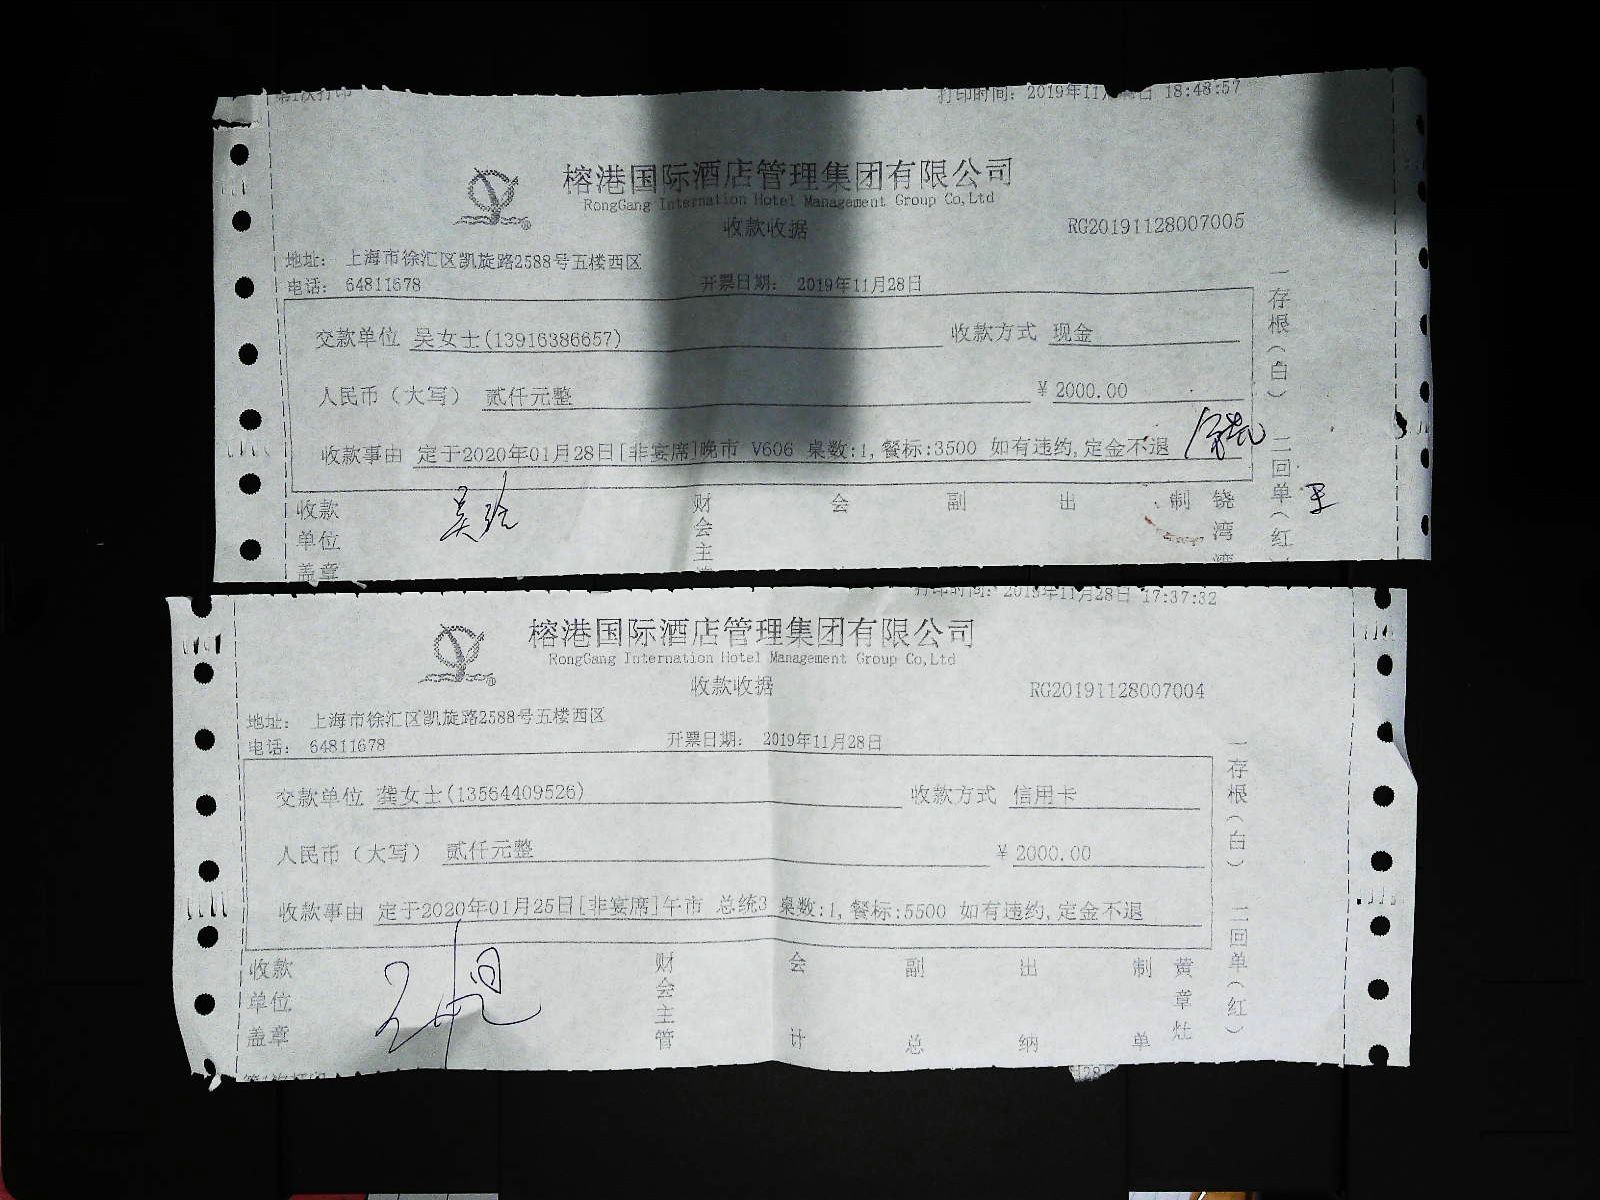 第1次打印
打印时间: 2019年11月 日 18:48:57
榕港国际酒店管理集团有限公司
RongGang Internation Hotel Management Group Co,Ltd
收款收据
RG20191128007005
地址: 上海市徐汇区凯旋路2588号五楼西区
电话: 64811678
开票日期: 2019年11月28日
交款单位 吴女士(13916386657)
收款方式 现金
人民币（大写） 贰仟元整
¥ 2000.00
收款事由 定于2020年01月28日[非宴席]晚市 V606 桌数:1,餐标:3500 如有违约,定金不退
一存根（白） 二回单（红
收款单位盖章
财会主
会
副
出
制
饶湾湾
打印时间: 2019年11月28日 17:37:32
榕港国际酒店管理集团有限公司
RongGang Internation Hotel Management Group Co,Ltd
收款收据
RG20191128007004
地址: 上海市徐汇区凯旋路2588号五楼西区
电话: 64811678
开票日期: 2019年11月28日
交款单位 龚女士(13564409526)
收款方式 信用卡
人民币（大写） 贰仟元整
¥ 2000.00
收款事由 定于2020年01月25日[非宴席]午市 总统3 桌数:1,餐标:5500 如有违约,定金不退
一存根（白） 二回单（红）
收款单位盖章
财会主管
会计
副总
出纳
制单
黄章灶